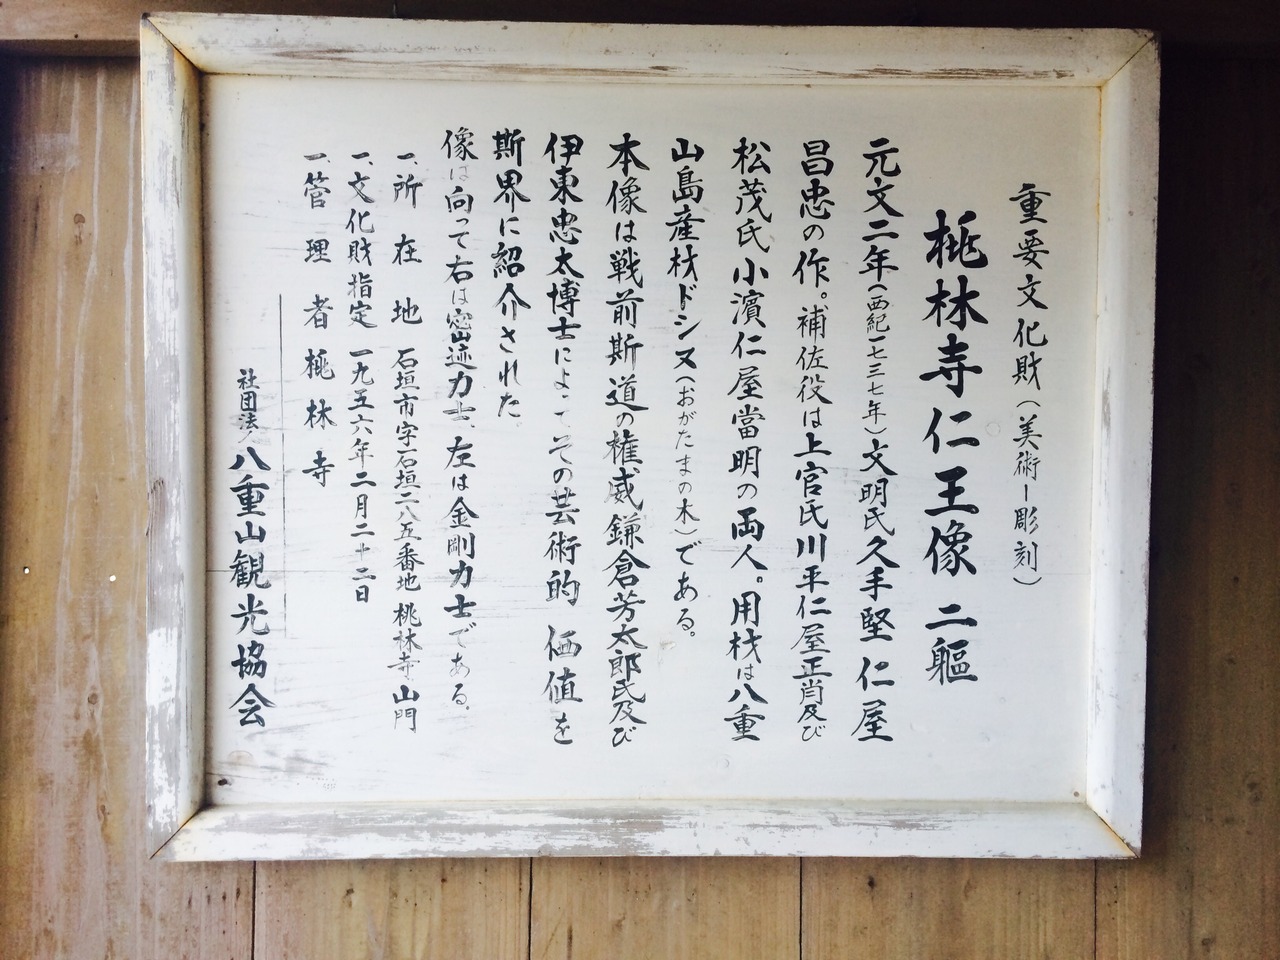 重要文化財(美術ー彫刻)
桃林寺仁王像 二軀
元文二年(西紀一七三七年)文明氏久手堅仁屋
昌忠の作。補佐役は上官氏川平仁屋正肖及び
松茂氏小濱仁屋當明の両人。用材は八重
山島産材ドシヌ(おがたまの木)である。
本像は戦前斯道の権威鎌倉芳太郎氏及び
伊東忠太博士によってその芸術的価値を
斯界に紹介された
像は向って右は密迹力士、左は金剛力士である。
一、所在地 石垣市字石垣二八五番地桃林寺山門
一、文化財指定 一九五六年二月二十二日
一、管理者 桃林寺
社団法人八重山観光協会